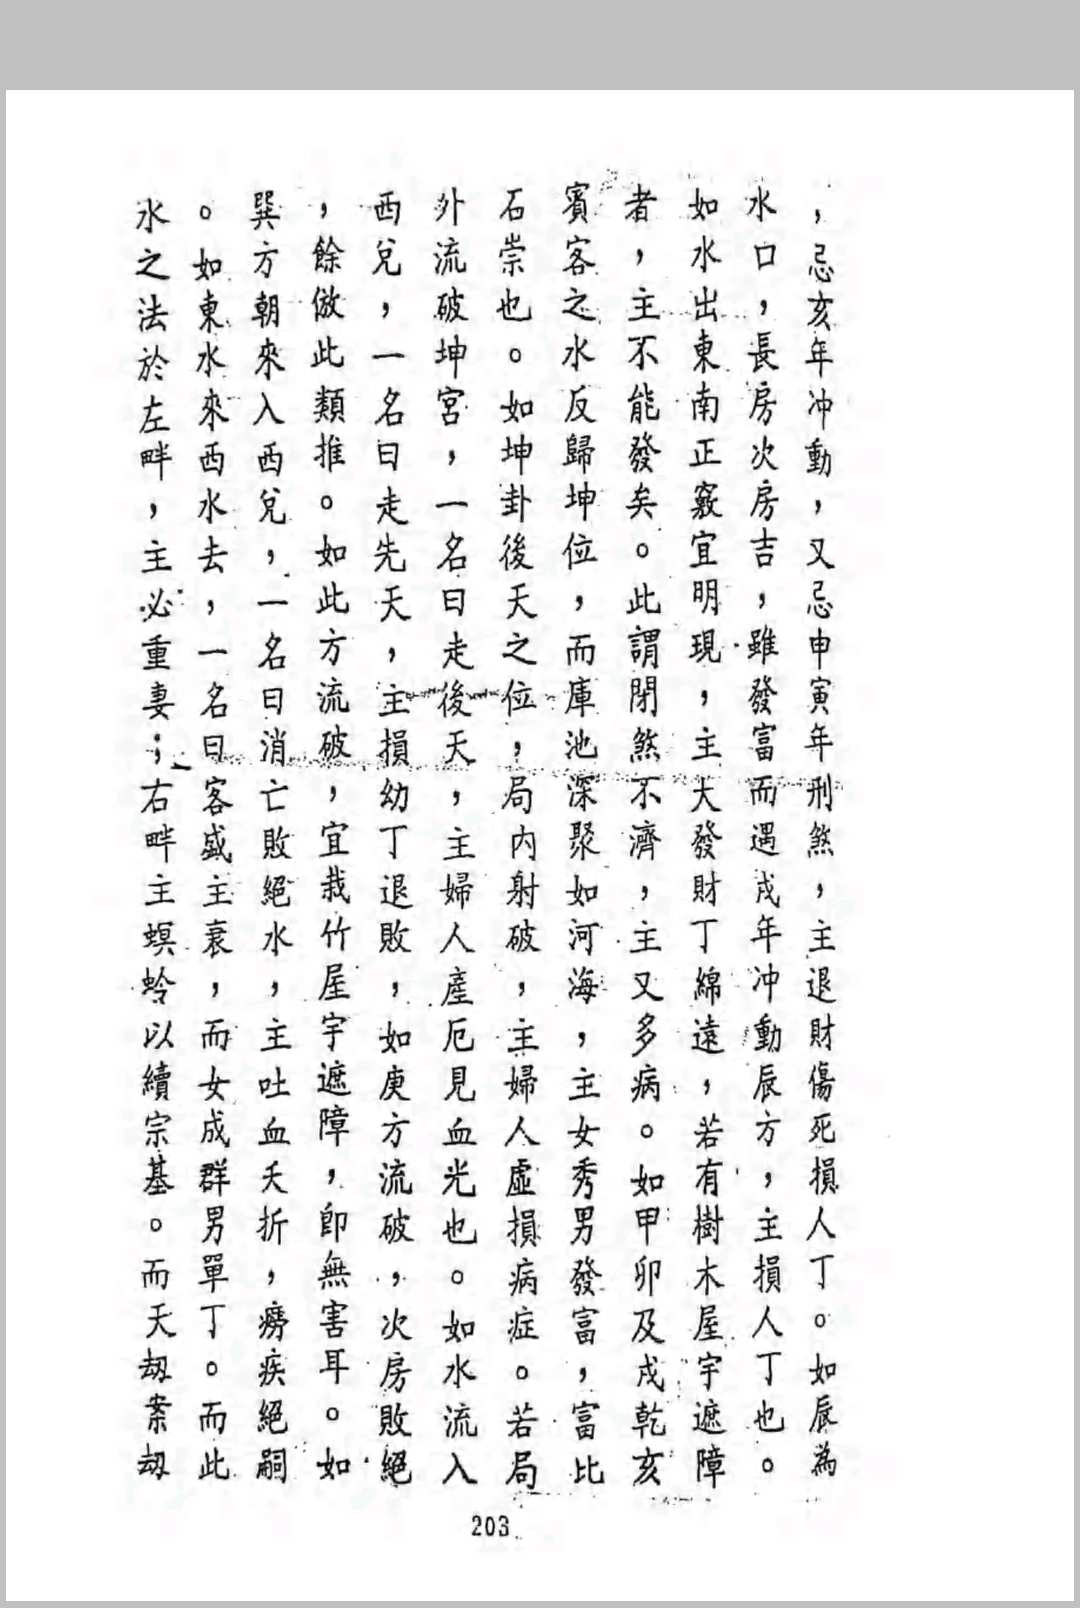 ，忌亥年冲動，又忌申寅年刑煞，主退財傷死損人丁。如辰為
水口，長房次房吉，雖發富而遇戌年冲動辰方，主損人丁也。
如水出東南正竅宜明現，主大發財丁綿遠，若有樹木屋宇遮障
者，主不能發矣。此謂閉煞不濟，主又多病。如甲卯及戌乾亥
賓客之水反歸坤位，而庫池深聚如河海，主女秀男發富，富比
石崇也。如坤卦後天之位，局內射破，主婦人虛損病症。若局
外流破坤宮，一名曰走後天，主婦人產厄見血光也。如水流入
西兌，一名曰走先天，主損幼丁退敗，如庚方流破，次房敗絕
，餘倣此類推。如此方流破，宜栽竹屋宇遮障，即無害耳。如
巽方朝來入西兌，一名曰消亡敗絕水，主吐血夭折，癆疾絕嗣
。如東水來西水去，一名曰客盛主衰，而女成群男單丁。而此
水之法於左畔，主必重妻；右畔主螟蛉以續宗基。而天劫案劫
203